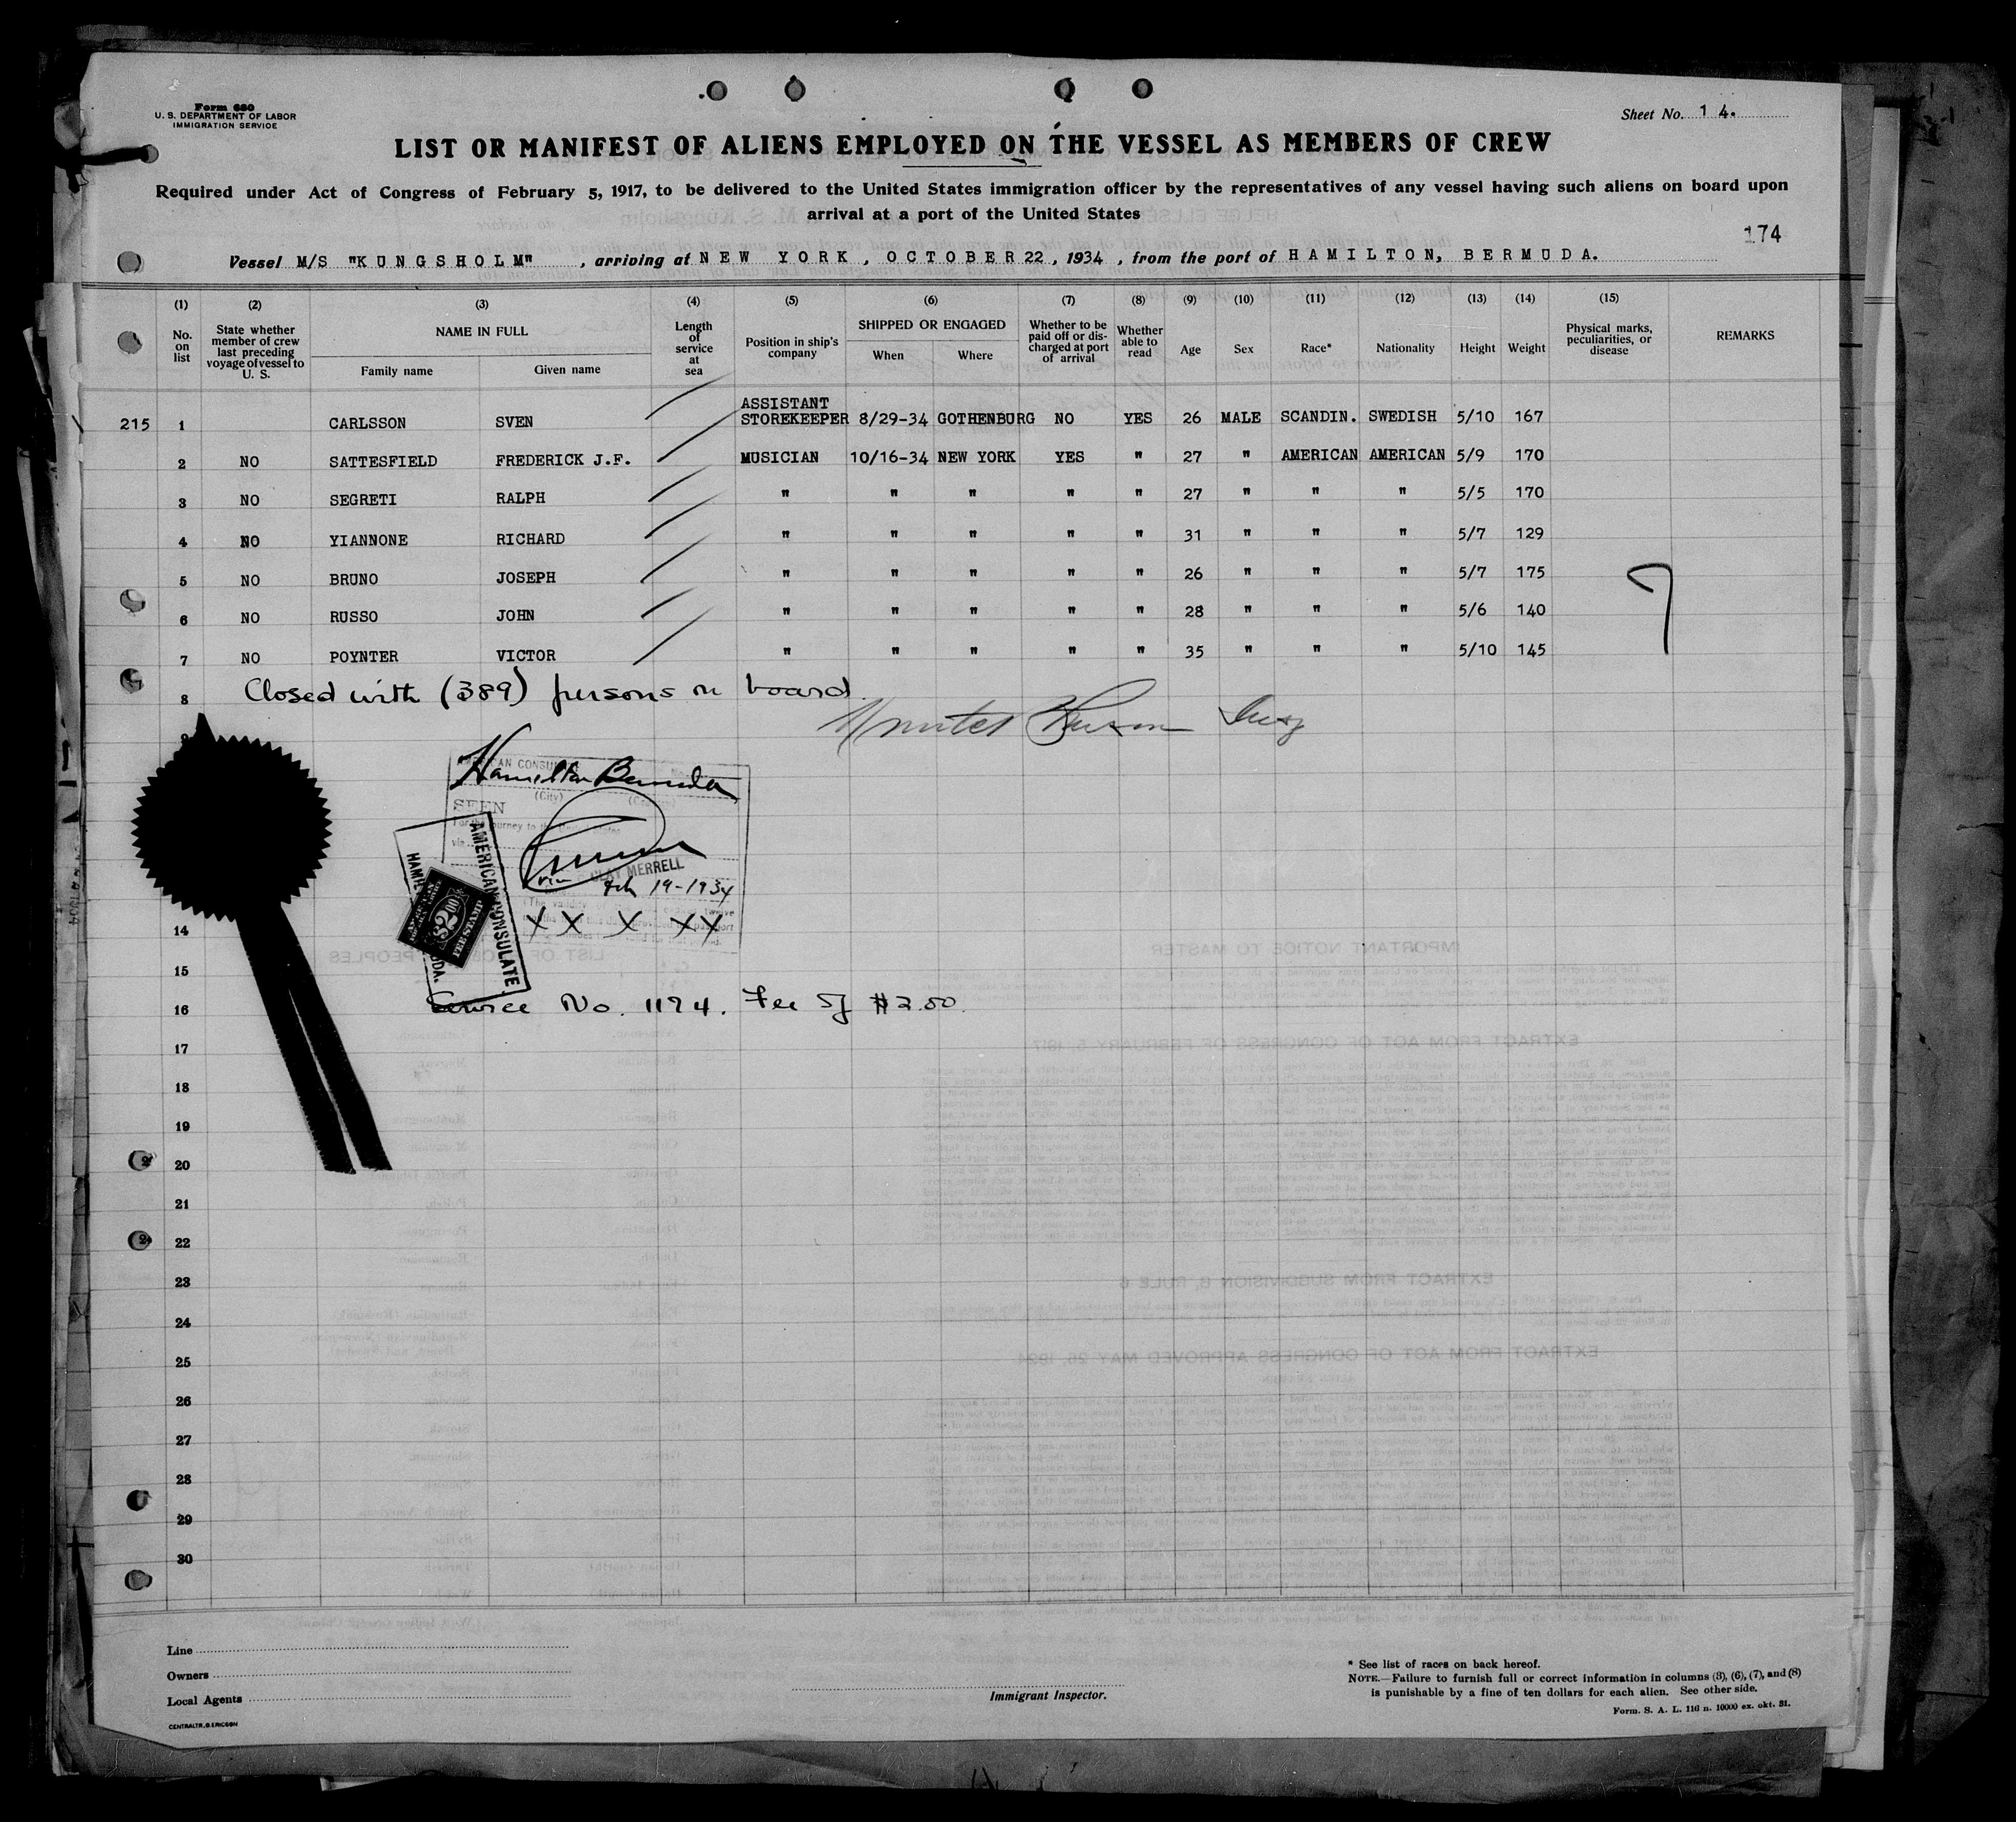 Form 680
U. S. DEPARTMENT OF LABOR
IMMIGRATION SERVICE
Sheet No. 1 4.
LIST OR MANIFEST OF ALIENS EMPLOYED ON THE VESSEL AS MEMBERS OF CREW
Required under Act of Congress of February 5, 1917, to be delivered to the United States immigration officer by the representatives of any vessel having such aliens on board upon
arrival at a port of the United States
174
Vessel M/S "KUNGSHOLM", arriving at NEW YORK, OCTOBER 22, 1934, from the port of HAMILTON, BERMUDA.
(1) (2) (3) (4) (5) (6) (7) (8) (9) (10) (11) (12) (13) (14) (15)
No. on list
State whether member of crew last preceding voyage of vessel to U. S.
NAME IN FULL
Family name
Given name
Length of service at sea
Position in ship's company
SHIPPED OR ENGAGED
When
Where
Whether to be paid off or discharged at port of arrival
Whether able to read
Age
Sex
Race*
Nationality
Height
Weight
Physical marks, peculiarities, or disease
REMARKS
215 1 CARLSSON SVEN ASSISTANT STOREKEEPER 8/29-34 GOTHENBURG NO YES 26 MALE SCANDIN. SWEDISH 5/10 167
2 NO SATTESFIELD FREDERICK J.F. MUSICIAN 10/16-34 NEW YORK YES " 27 " AMERICAN AMERICAN 5/9 170
3 NO SEGRETI RALPH " " " " " 27 " " " 5/5 170
4 NO YIANNONE RICHARD " " " " " 31 " " " 5/7 129
5 NO BRUNO JOSEPH " " " " " 26 " " " 5/7 175
6 NO RUSSO JOHN " " " " " 28 " " " 5/6 140
7 NO POYNTER VICTOR " " " " " 35 " " " 5/10 145
8 Closed with (389) persons on board
AMERICAN CONSUL
Hamilton Bermuda
(City)
SEEN
For the journey to the United States
via
CLAY MERRELL
19-1934
X X X X X
AMERICAN CONSULATE
$2.00
FEE STAMP
14
15
16 Service No. 1194. Fee of $2.00.
17
18
19
20
21
22
23
24
25
26
27
28
29
30
Line
Owners
Local Agents
CENTRALTR. G. ERICSON
Immigrant Inspector.
* See list of races on back hereof.
NOTE.—Failure to furnish full or correct information in columns (3), (6), (7), and (8)
is punishable by a fine of ten dollars for each alien. See other side.
Form. S. A. L. 116 n. 10000 ex. okt. 31.